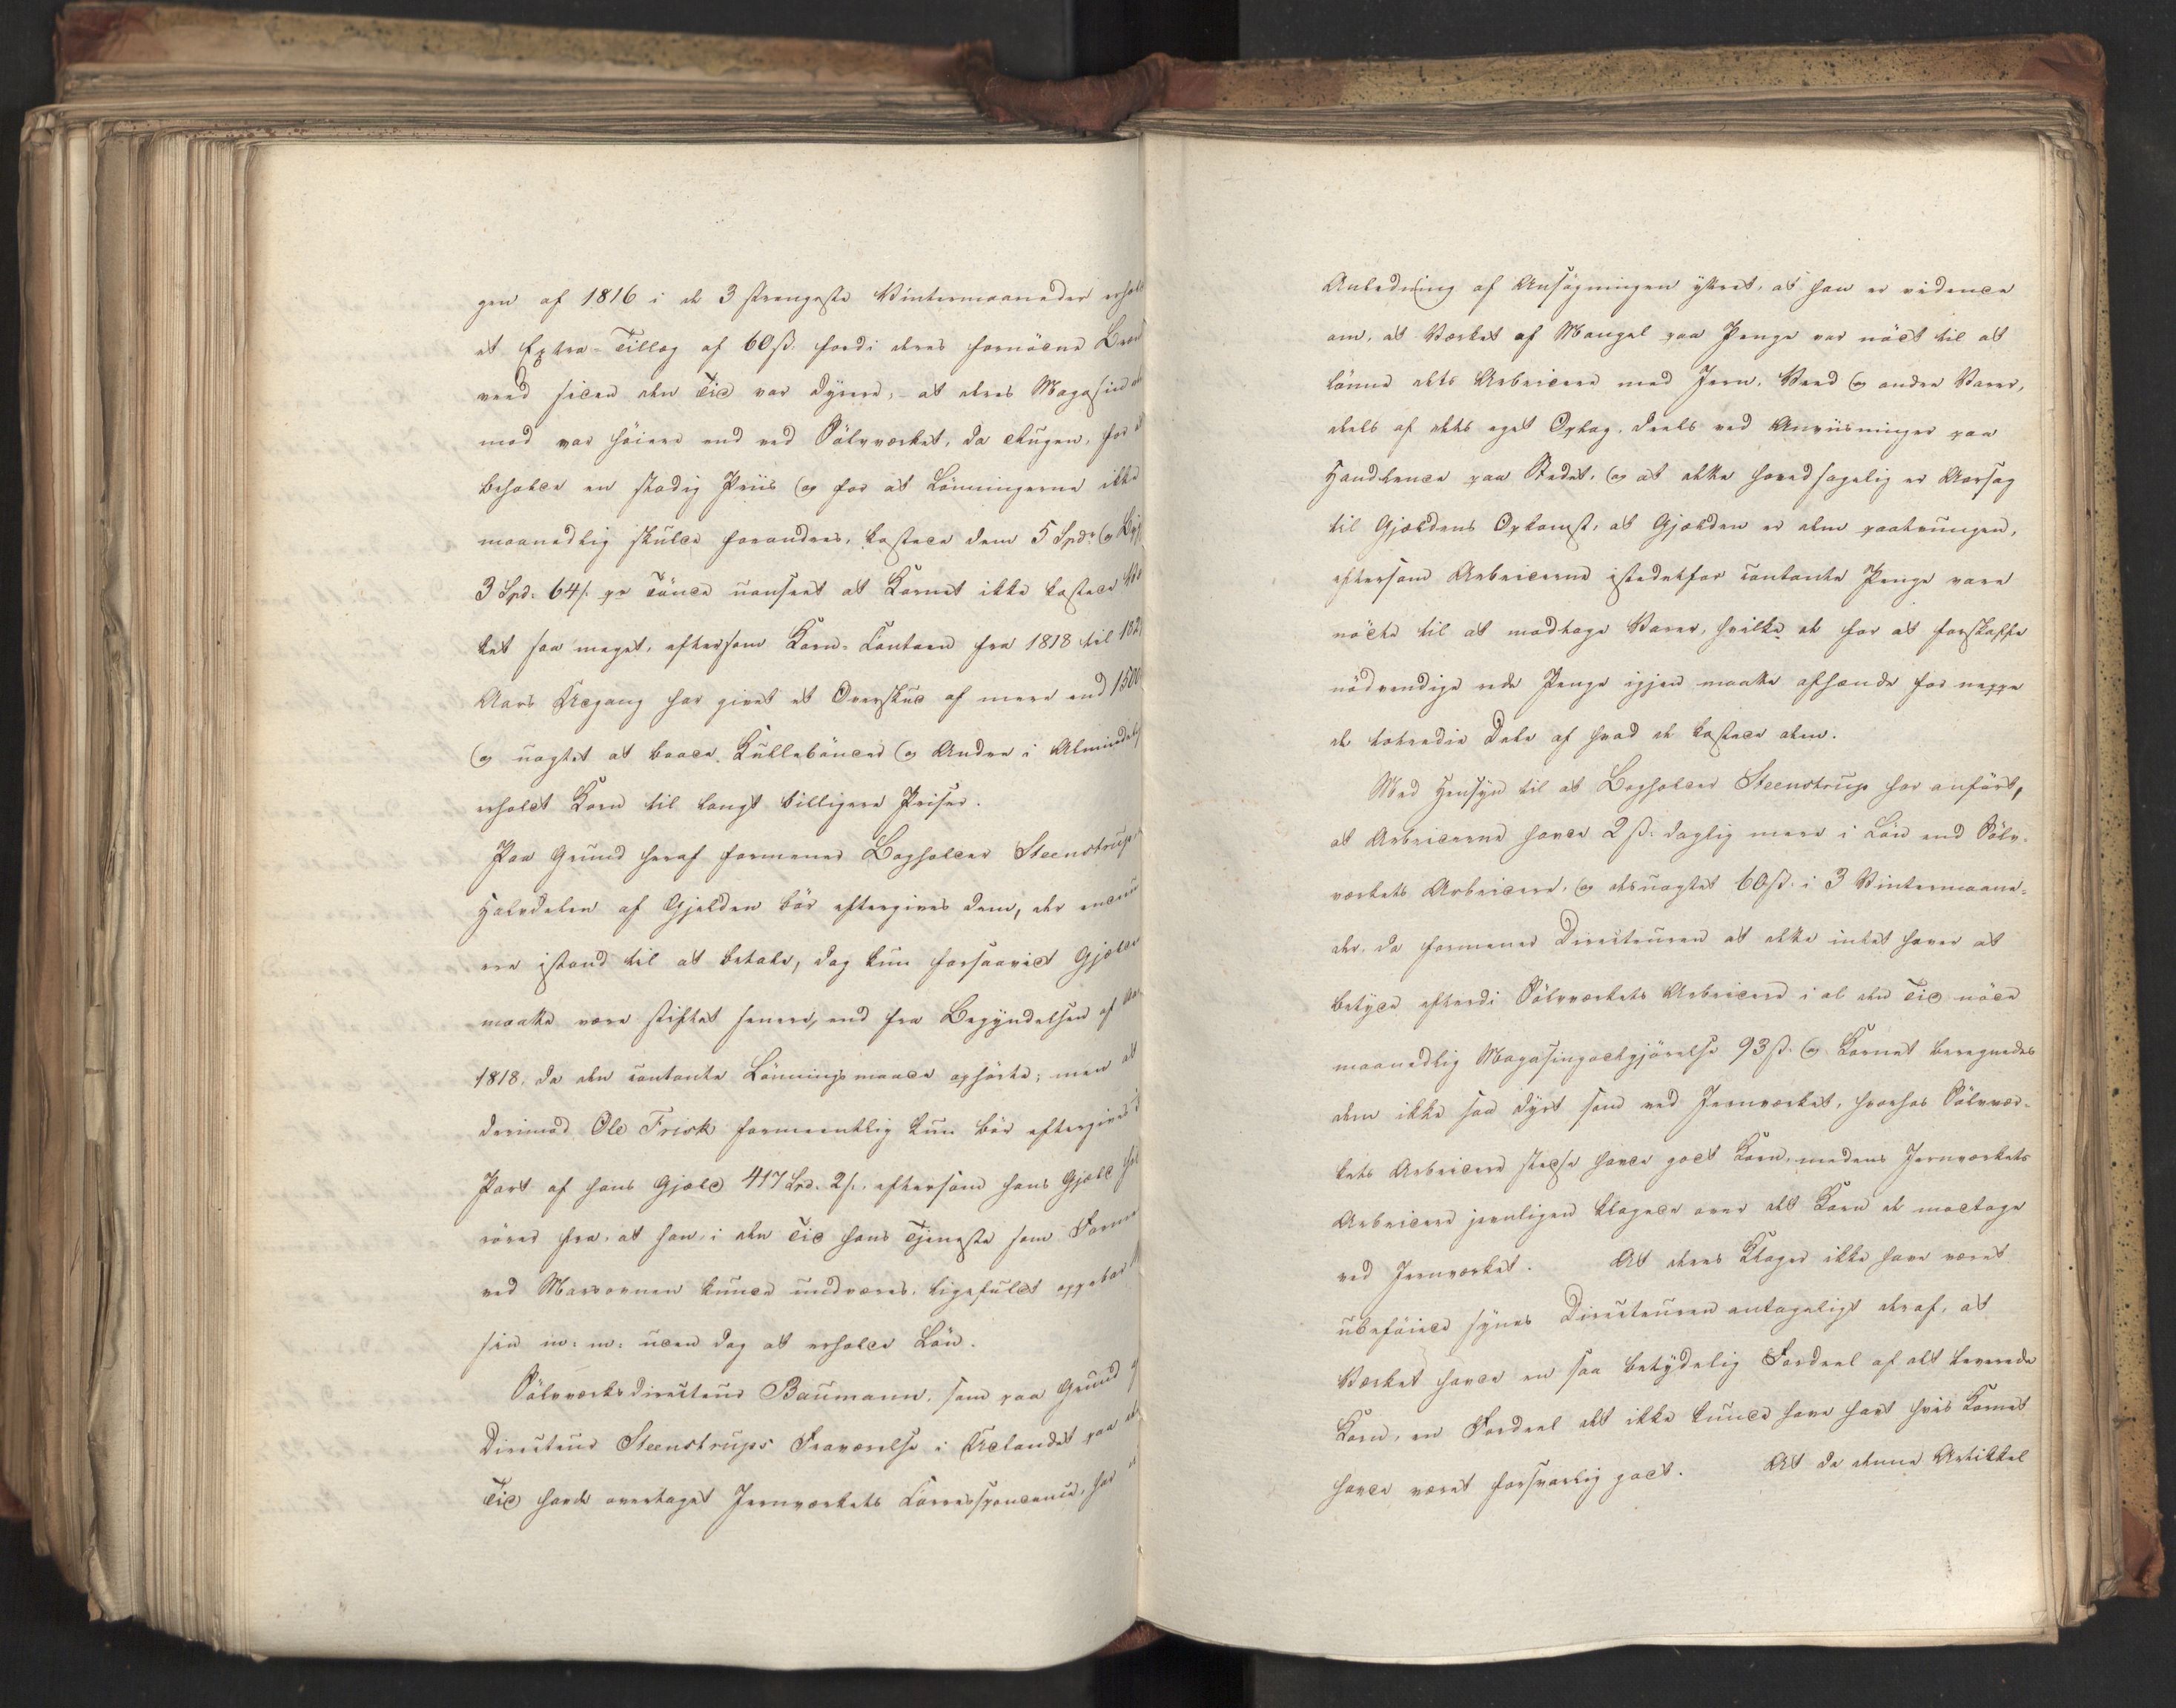 gen af 1816 i de 3 strengeste Vintermaaneder erholdt
et Extra-Tillæg af 60ß. fordi deres fornödne Bræn
veed siden den Tid var dyrere, - at deres Magasin
mod var höiere end ved Sölvværket, da Kugen, for at
beholde en stadig Priis og for at Lönningerne ikke
maanedlig skulde forandres, kostede dem 5 Spdr og
3 Spd: 64ß. pr Tönde uanseet at Kornet ikke kostede
ket saa meget, eftersom Korn-Contoen fra 1818 til 182
Aars Udgang har givet et Overskud af mere end 1500
og uagtet at baade Kullebönder og Andre i Almindelig
erholdt Korn til langt billigere Priser.
Paa Grund heraf formener Bogholder Steenstrup,
Halvdelen af Gjelden bör eftergives dem, der endnu
ere istand til at betale, dog kun forsaavidt Gjælden
maatte være stiftet senere, end fra Begyndelsen af
1818, da den contante Lönningsmaade ophörte; men at
derimod Ole Frisk formeentlig kun bör eftergives
Part af hans Gjæld 417 Spd. 2ß. eftersom hans Gjæld
rörer fra, at han i den Tid hans Tjeneste som Former
ved Masovnen kunde undværes, ligefuldt oppebar
sin m: m: uden dog at erholde Lön.
Sölvværksdirecteur Baumann, som paa Grund af
Directeur Steenstrups Fraværelse i Udlandet paa
Tid havde overtaget Jernværkets Correspondence, har i
Anledning af Ansögningen yttret, at han er vidende
om, at Værket af Mangel paa Penge var nödt til at
lönne dets Arbeidere med Jern, Veed og andre Varer,
deels af dets eget Oplag, deels ved Anviisninger paa
Handlende paa Stedet, og at dette hovedsagelig er Aarsag
til Gjældens Opkomst, at Gjælden er dem paatvungen,
eftersom Arbeiderne istedetfor contante Penge vare
nödte til at modtage Varer, hvilke de for at forskaffe
nödvendige rede Penge igjen maatte afhænde for neppe
de totredie Dele af hvad de kostede dem.
Med Hensyn til at Bogholder Steenstrup har anfört,
at Arbeiderne havde 2ß. daglig mere i Lön end Sölv-
værkets Arbeidere, og desuagtet 60ß. i 3 Vintermaane-
der, da formener Directeuren at dette intet haver at
betyde efterdi Sölvværkets Arbeidere i al den Tid nöde
maanedlig Magasingodtgjörelse 93ß. og Kornet beregnedes
dem ikke saa dyrt som ved Jernværket, hvorhos Sölvvær-
kets Arbeidere stedse havde godt Korn, medens Jernværkets
Arbeidere jevnligen klagede over det Korn de modtoge
ved Jernværket. At deres Klager ikke have været
ubeföiede synes Directeuren antageligt deraf, at
Værket havde en saa betydelig Fordeel af alt leverede
Korn, en Fordeel det ikke kunde have havt hvis Kornet
havde været forsvarlig godt. At da denne Artikkel